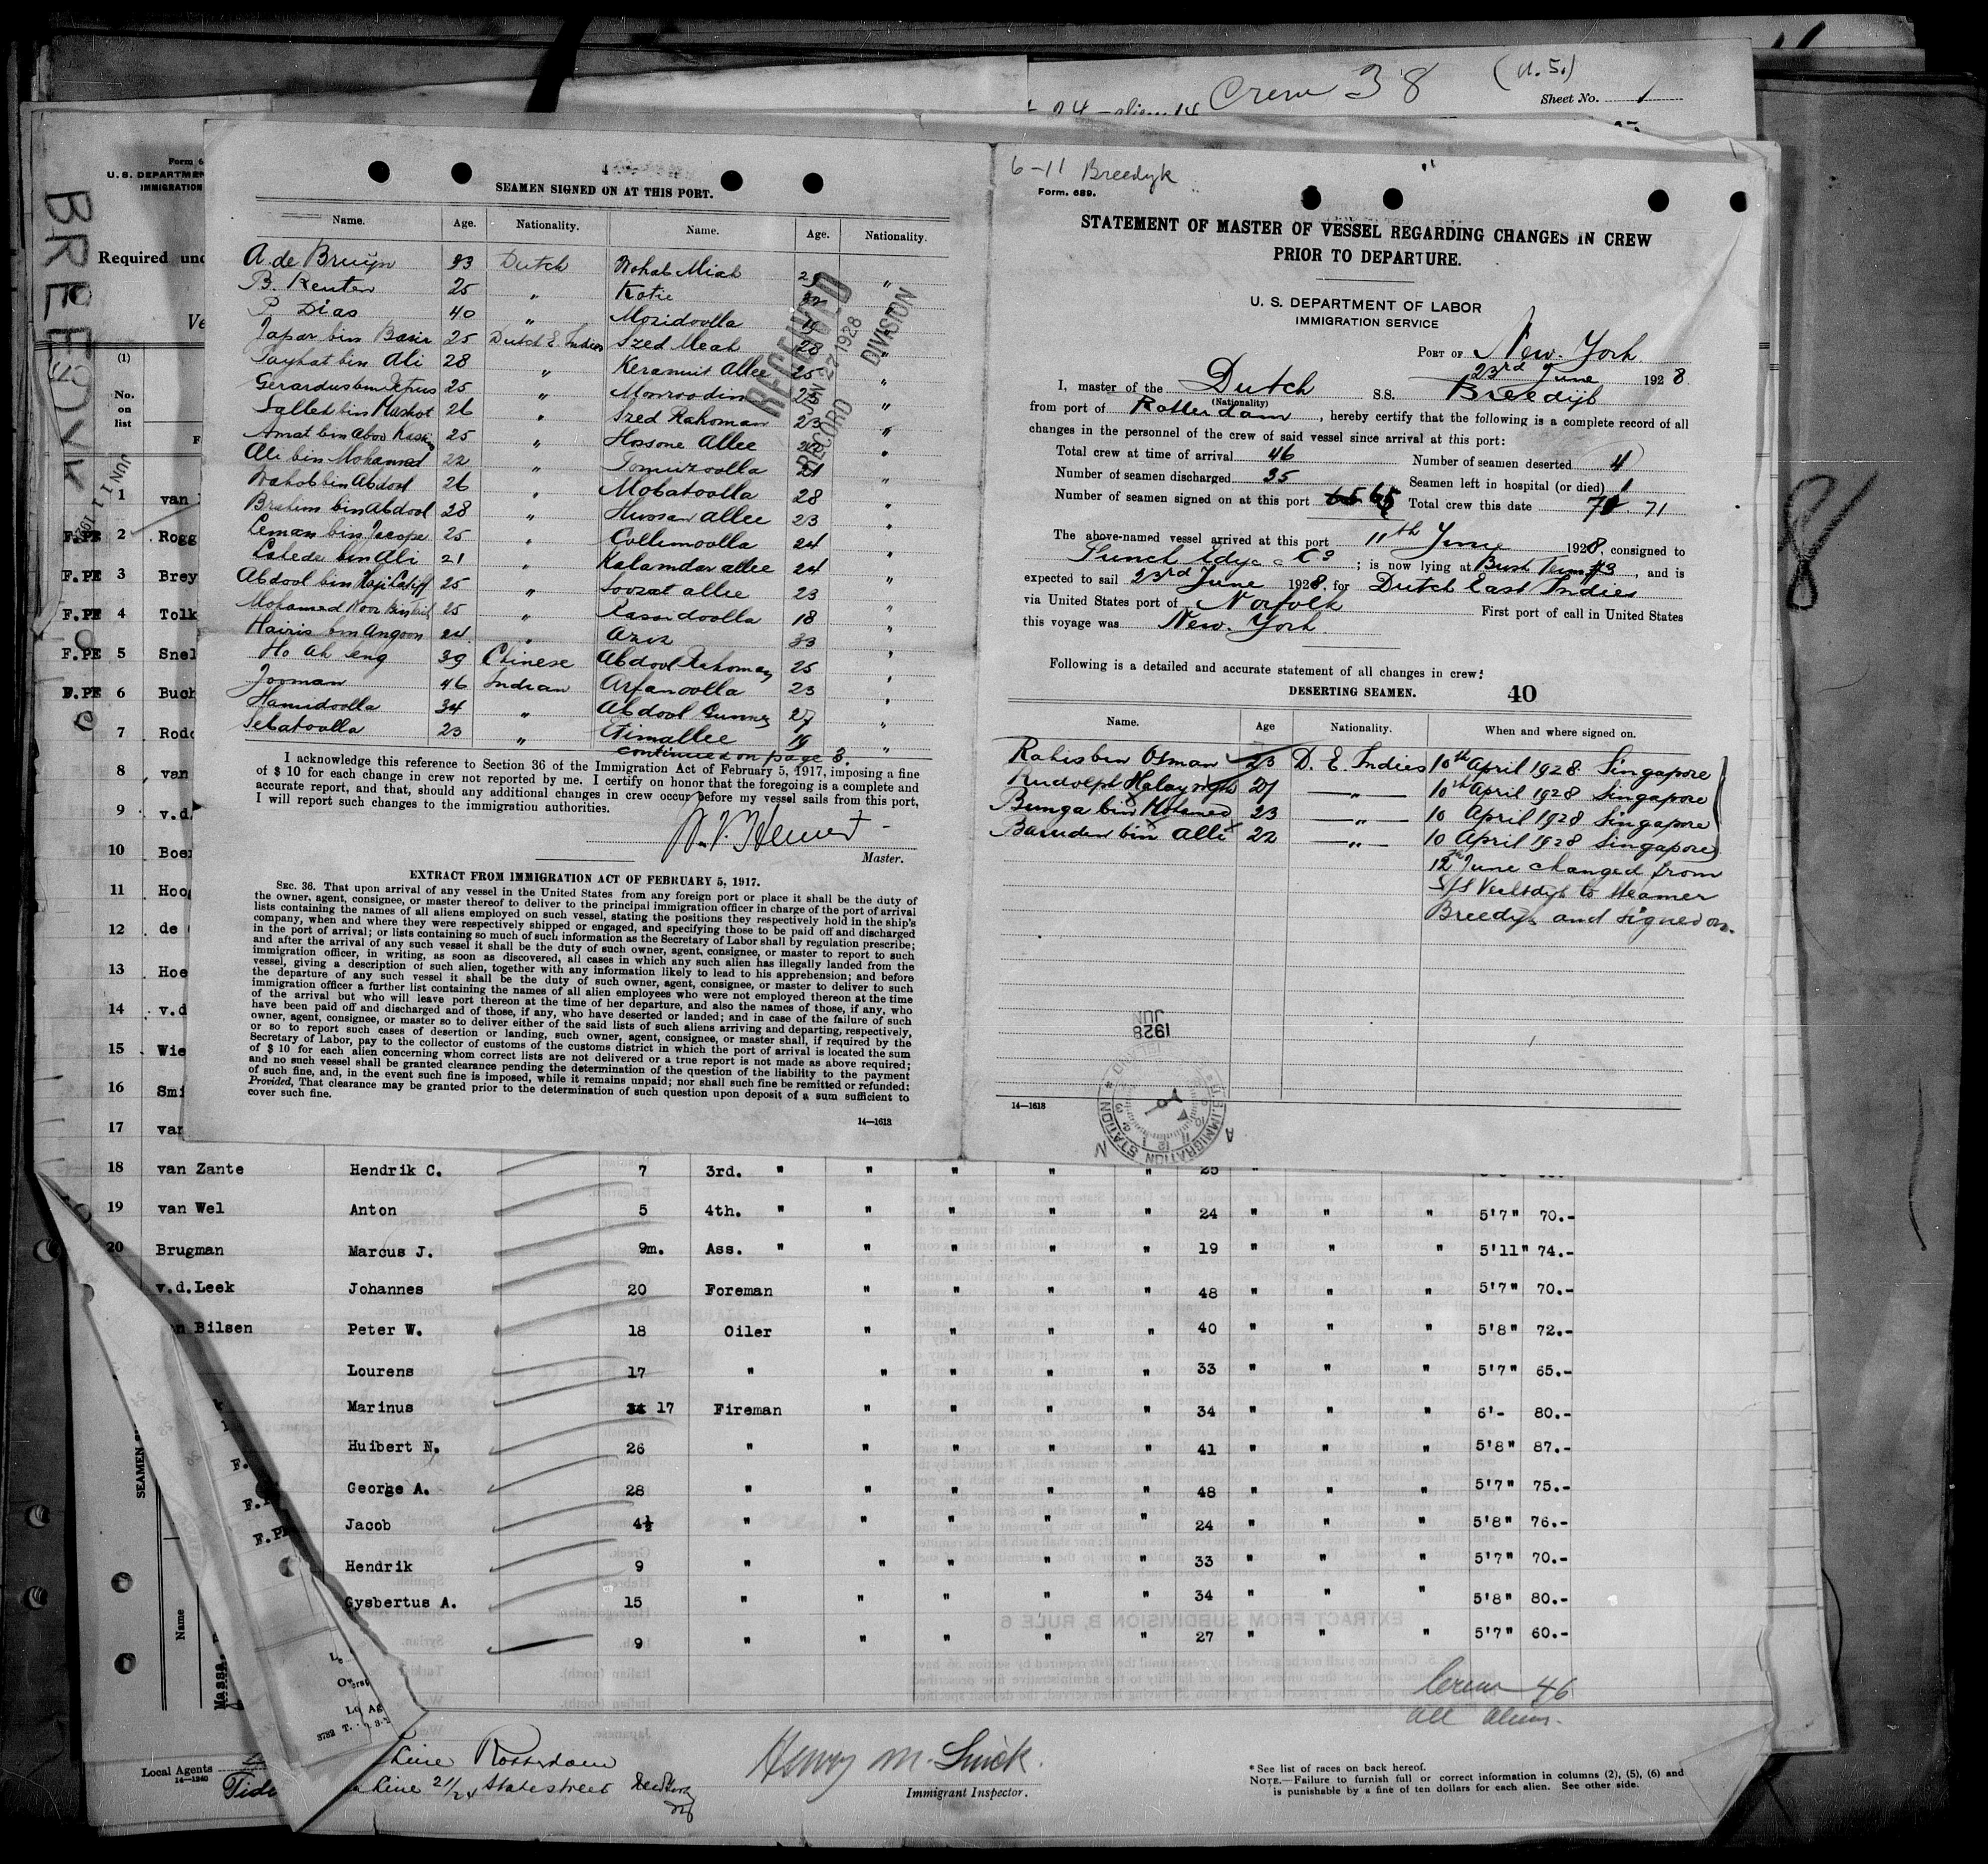 Crew 38 (U.S.)
Sheet No. 1
Form 6
U. S. DEPARTMEN
IMMIGRATION
Required und
BREEDYK
(1)
No.
on
list
JUN 11 1928
SEAMEN SIGNED ON AT THIS PORT.
Name. Age. Nationality. Name. Age. Nationality.
A. de Bruijn 23 Dutch Wohab Miah 25 "
B. Reuter 25 " Kotie "
P. Dias 40 " Mozidoolla 19 "
Japar bin Basir 25 Dutch E. Indies Szed Meah 28 "
Tayhat bin Ali 28 " Keramut Allee 25 "
Gerardus bin Petrus 25 " Monroodin 25 "
Salleh bin Mashot 26 " Szed Rahoman 23 "
Amat bin Aboo Kasim 25 " Hossone Allee "
Ali bin Mohamed 22 " Tomizoolla 21 "
Wahob bin Abdool 26 " Mobatoolla 28 "
Brahim bin Abdool 28 " Hussan Allee 23 "
Leman bin Jacope 25 " Collimoolla 24 "
Lahede bin Ali 21 " Kalamdar allee 24 "
Abdool bin Haji Latiff 25 " Soozat allee 23 "
Mohamed Noor bin 25 " Rasidoolla 18 "
Hairis bin Angoon 24 " Aziz 33 "
Ho Ah Seng 39 Chinese Abdool Rahoman 25 "
Jooman 46 Indian Arfanoolla 23 "
Hamidoolla 34 " Abdool Gunney 27 "
Sebatoolla 23 " Etimallee 19 "
continued on page 3.
RECEIVED
JUN 27 1928
RECORD DIVISION
I acknowledge this reference to Section 36 of the Immigration Act of February 5, 1917, imposing a fine
of $ 10 for each change in crew not reported by me. I certify on honor that the foregoing is a complete and
accurate report, and that, should any additional changes in crew occur before my vessel sails from this port,
I will report such changes to the immigration authorities.
Master.
EXTRACT FROM IMMIGRATION ACT OF FEBRUARY 5, 1917.
SEC. 36. That upon arrival of any vessel in the United States from any foreign port or place it shall be the duty of
the owner, agent, consignee, or master thereof to deliver to the principal immigration officer in charge of the port of arrival
lists containing the names of all aliens employed on such vessel, stating the positions they respectively hold in the ship's
company, when and where they were respectively shipped or engaged, and specifying those to be paid off and discharged
in the port of arrival; or lists containing so much of such information as the Secretary of Labor shall by regulation prescribe;
and after the arrival of any such vessel it shall be the duty of such owner, agent, consignee, or master to report to such
immigration officer, in writing, as soon as discovered, all cases in which any such alien has illegally landed from the
vessel, giving a description of such alien, together with any information likely to lead to his apprehension; and before
the departure of any such vessel it shall be the duty of such owner, agent, consignee, or master to deliver to such
immigration officer a further list containing the names of all alien employees who were not employed thereon at the time
of the arrival but who will leave port thereon at the time of her departure, and also the names of those, if any, who
have been paid off and discharged and of those, if any, who have deserted or landed; and in case of the failure of such
owner, agent, consignee, or master so to deliver either of the said lists of such aliens arriving and departing, respectively,
or so to report such cases of desertion or landing, such owner, agent, consignee, or master, shall, if required by the
Secretary of Labor, pay to the collector of customs of the customs district in which the port of arrival is located the sum
of $ 10 for each alien concerning whom correct lists are not delivered or a true report is not made as above required;
and no such vessel shall be granted clearance pending the determination of the question of the liability to the payment
of such fine, and, in the event such fine is imposed, while it remains unpaid; nor shall such fine be remitted or refunded:
Provided, That clearance may be granted prior to the determination of such question upon deposit of a sum sufficient to
cover such fine.
14—1613
6-11 Breedyk
Form. 689.
STATEMENT OF MASTER OF VESSEL REGARDING CHANGES IN CREW
PRIOR TO DEPARTURE.
U. S. DEPARTMENT OF LABOR
IMMIGRATION SERVICE
PORT OF New. York
23rd June 1928.
I, master of the Dutch S.S. Breedijk
(Nationality)
from port of Rotterdam, hereby certify that the following is a complete record of all
changes in the personnel of the crew of said vessel since arrival at this port:
Total crew at time of arrival 46 Number of seamen deserted 4
Number of seamen discharged 35 Seamen left in hospital (or died) 1
Number of seamen signed on at this port 65 Total crew this date 71
The above-named vessel arrived at this port 11th June 1928, consigned to
Funch Edye & Co ; is now lying at Bush Term #3, and is
expected to sail 23rd June 1928. for Dutch East Indies
via United States port of Norfolk First port of call in United States
this voyage was New. York.
Following is a detailed and accurate statement of all changes in crew:
DESERTING SEAMEN. 40
Name. Age Nationality. When and where signed on.
Rahis bin Osman 23 D. E. Indies 10th April 1928 Singapore
Rudolph 21 —"— 10th April 1928 Singapore
Bunga bin Mohamed 23 —"— 10 April 1928 Singapore
Bamden bin Alli 22 —"— 10 April 1928 Singapore
12th June changed from
S/S Veendijk to steamer
Breedijk and signed on.
JUN
1928
U.S. IMMIGRATION STATION
14—1613
1 van
F.PE 2 Rogg
F.PE 3 Brey
F.PE 4 Tolk
F.PE 5 Snel
F.PE 6 Buch
7 Rodo
8 van
9 v.d.
10 Boer
11 Hoog
12 de
13 Hoe
14 v.d
15 Wie
16 Smi
17 van
18 van Zante Hendrik C. 7 3rd. " " " " " 25
19 van Wel Anton 5 4th. " " " " " 24 " " " 5'7" 70.-
20 Brugman Marcus J. 9m. Ass. " " " " " 19 " " " 5'11" 74.-
v.d.Leek Johannes 20 Foreman " " " " 48 " " " 5'7" 70.-
n Bilsen Peter W. 18 Oiler " " " " 40 " " " 5'8" 72.-
Lourens 17 " " " " " 33 " " " 5'7" 65.-
Marinus 17 Fireman " " " " 34 " " " 6'- 80.-
Huibert N. 26 " " " " " 41 " " " 5'8" 87.-
George A. 28 " " " " " 48 " " " 5'7" 75.-
Jacob 4½ " " " " " 24 " " " 5'8" 76.-
Hendrik 9 " " " " " 33 " " " 5'7" 70.-
Gysbertus A. 15 " " " " " 34 " " " 5'8" 80.-
9 " " " " " 27 " " " 5'7" 60.-
Crew 46
all aliens.
Local Agents
14—1240
Line Rotterdam
Line 21/24 Statestreet New York
Immigrant Inspector.
* See list of races on back hereof.
NOTE.—Failure to furnish full or correct information in columns (2), (5), (6) and
is punishable by a fine of ten dollars for each alien. See other side.
SEAMEN
Name